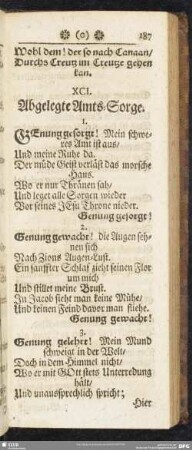 (o) 187
Wohl dem! der so nach Canaan/
Durchs Creutz im Creutze gehen
kan.
XCI.
Abgelegte Amts-Sorge.
1.
GEnung gesorgt! Mein schwe-
res Amt ist aus/
Und meine Ruhe da.
Der müde Geist verläst das morsche
Haus.
Wo er nur Thränen sah/
Und leget alle Sorgen wieder
Vor seines JEsu Throne nieder.
Genung gesorgt!
2.
Genung gewacht! die Augen seh-
nen sich
Nach Zions Augen-Lust.
Ein sanffter Schlaf zieht seinen Flor
um mich
Und stillet meine Brust.
In Jacob sieht man keine Mühe/
Und keinen Feind davor man fliehe.
Genung gewacht!
3.
Genung gelehrt! Mein Mund
schweigt in der Welt/
Doch in dem Himmel nicht/
Wo er mit GOtt stets Unterredung
hält/
Und unaussprechlich spricht;
Hier